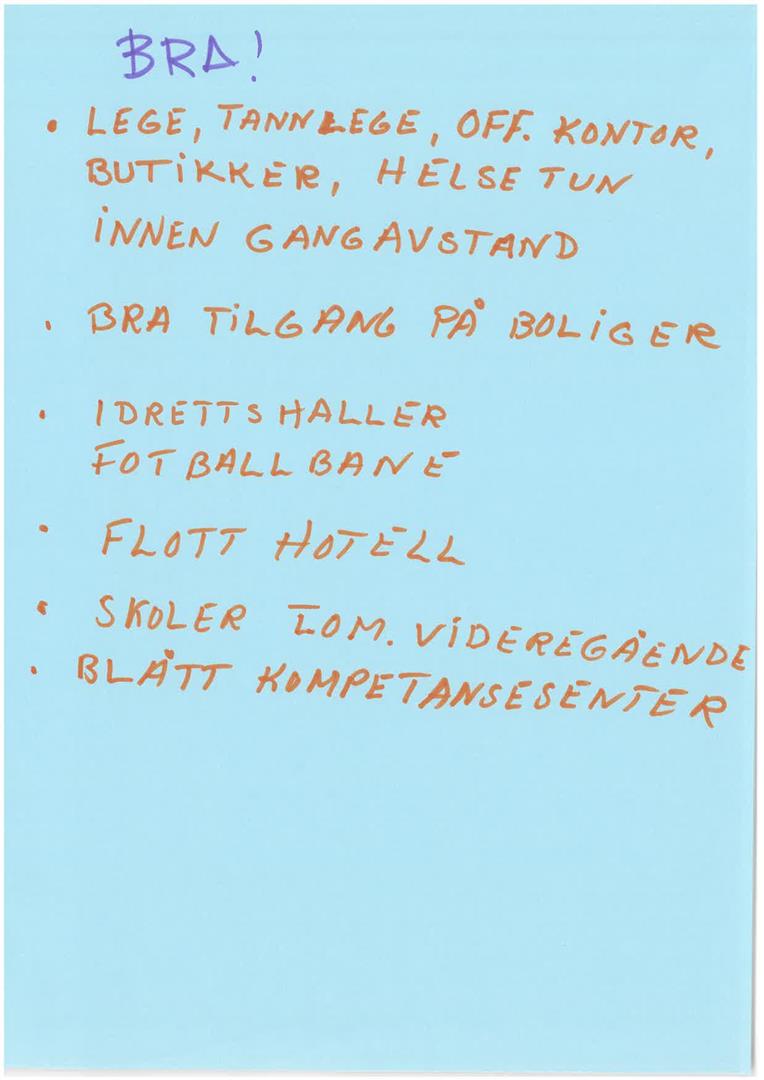 BRA!
• LEGE, TANNLEGE, OFF. KONTOR,
BUTIKKER, HELSETUN
INNEN GANGAVSTAND
• BRA TILGANG PÅ BOLIGER
• IDRETTSHALLER
FOTBALLBANE
• FLOTT HOTELL
• SKOLER TOM. VIDEREGÅENDE
• BLÅTT KOMPETANSESENTER